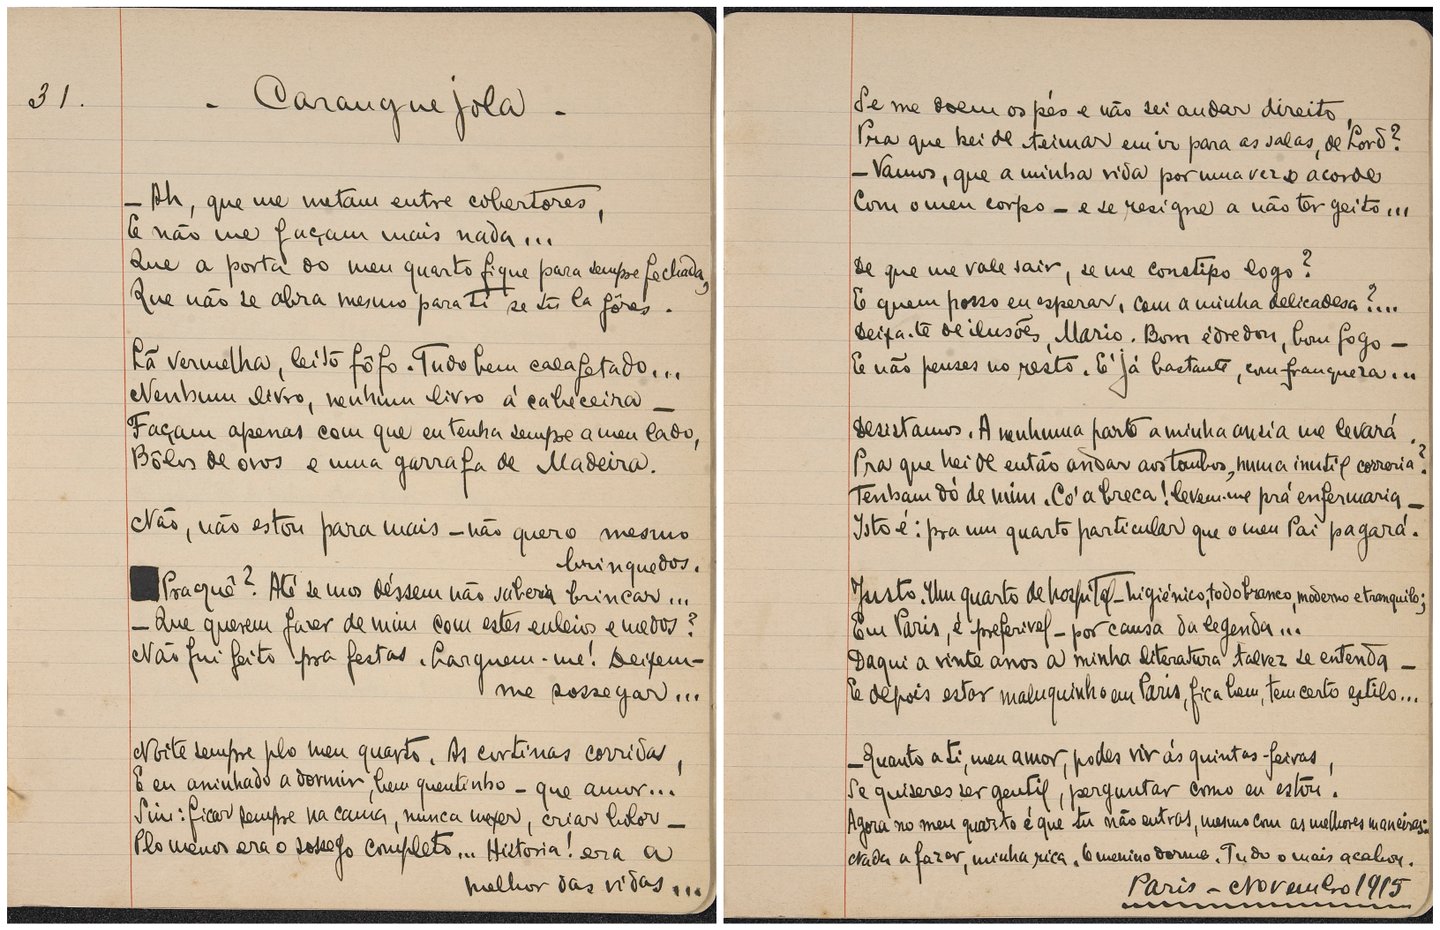 31.
- Caranguejola -
- Ah, que me metam entre cobertores,
E não me façam mais nada...
Que a porta do meu quarto fique para sempre fechada,
Que não se abra mesmo para ti se tu la fôres.
Lã vermelha, leito fôfo. Tudo bem calafetado...
Nenhum livro, nenhum livro á cabeceira -
Façam apenas com que eu tenha sempre a meu lado,
Bôlos de ovos e uma garrafa de Madeira.
Não, não estou para mais - não quero mesmo
brinquedos.
Praquê? Até se mos déssem não saberia brincar...
- Que querem fazer de mim com estes enleios e medos?
Não fui feito pra festas. Larguem-me! Deixem-
me sossegar...
Noite sempre plo meu quarto. As cortinas corridas,
E eu aninhado a dormir, bem quentinho - que amor...
Sim: ficar sempre na cama, nunca mexer, criar bolor -
Plo menos era o sossego completo... Historia! era a
melhor das vidas...
Se me doem os pés e não sei andar direito,
Pra que hei de teimar em ir para as salas, de Lord?
- Vamos, que a minha vida por uma vez se acorde
Com o meu corpo - e se resigne a não ter geito...
De que me vale sair, se me constipo logo?
E quem posso eu esperar, com a minha delicadesa?...
Deixa-te de ilusões, Mario. Bom édredon, bom fogo -
E não penses no resto. E' já bastante, com franqueza...
Desistamos. A nenhuma parte a minha ansia me levará.
Pra que hei de então andar aos tombos, numa inutil correria?
Tenham dó de mim. Co' a breca! levem-me prá enfermaria -
Isto é: pra um quarto particular que o meu Pai pagará.
Justo. Um quarto de hospital - higiénico, todo branco, moderno e tranquilo;
Em Paris, é preferivel - por causa da legenda...
Daqui a vinte anos a minha literatura talvez se entenda -
E depois estar maluquinho em Paris, fica bem, tem certo estilo...
- Quanto a ti, meu amor, podes vir ás quintas-feiras,
Se quiseres ser gentil, perguntar como eu estou.
Agora no meu quarto é que tu não entras, mesmo com as melhores maneiras:
Nada a fazer, minha rica. O menino dorme. Tudo o mais acabou.
Paris - Novembro 1915